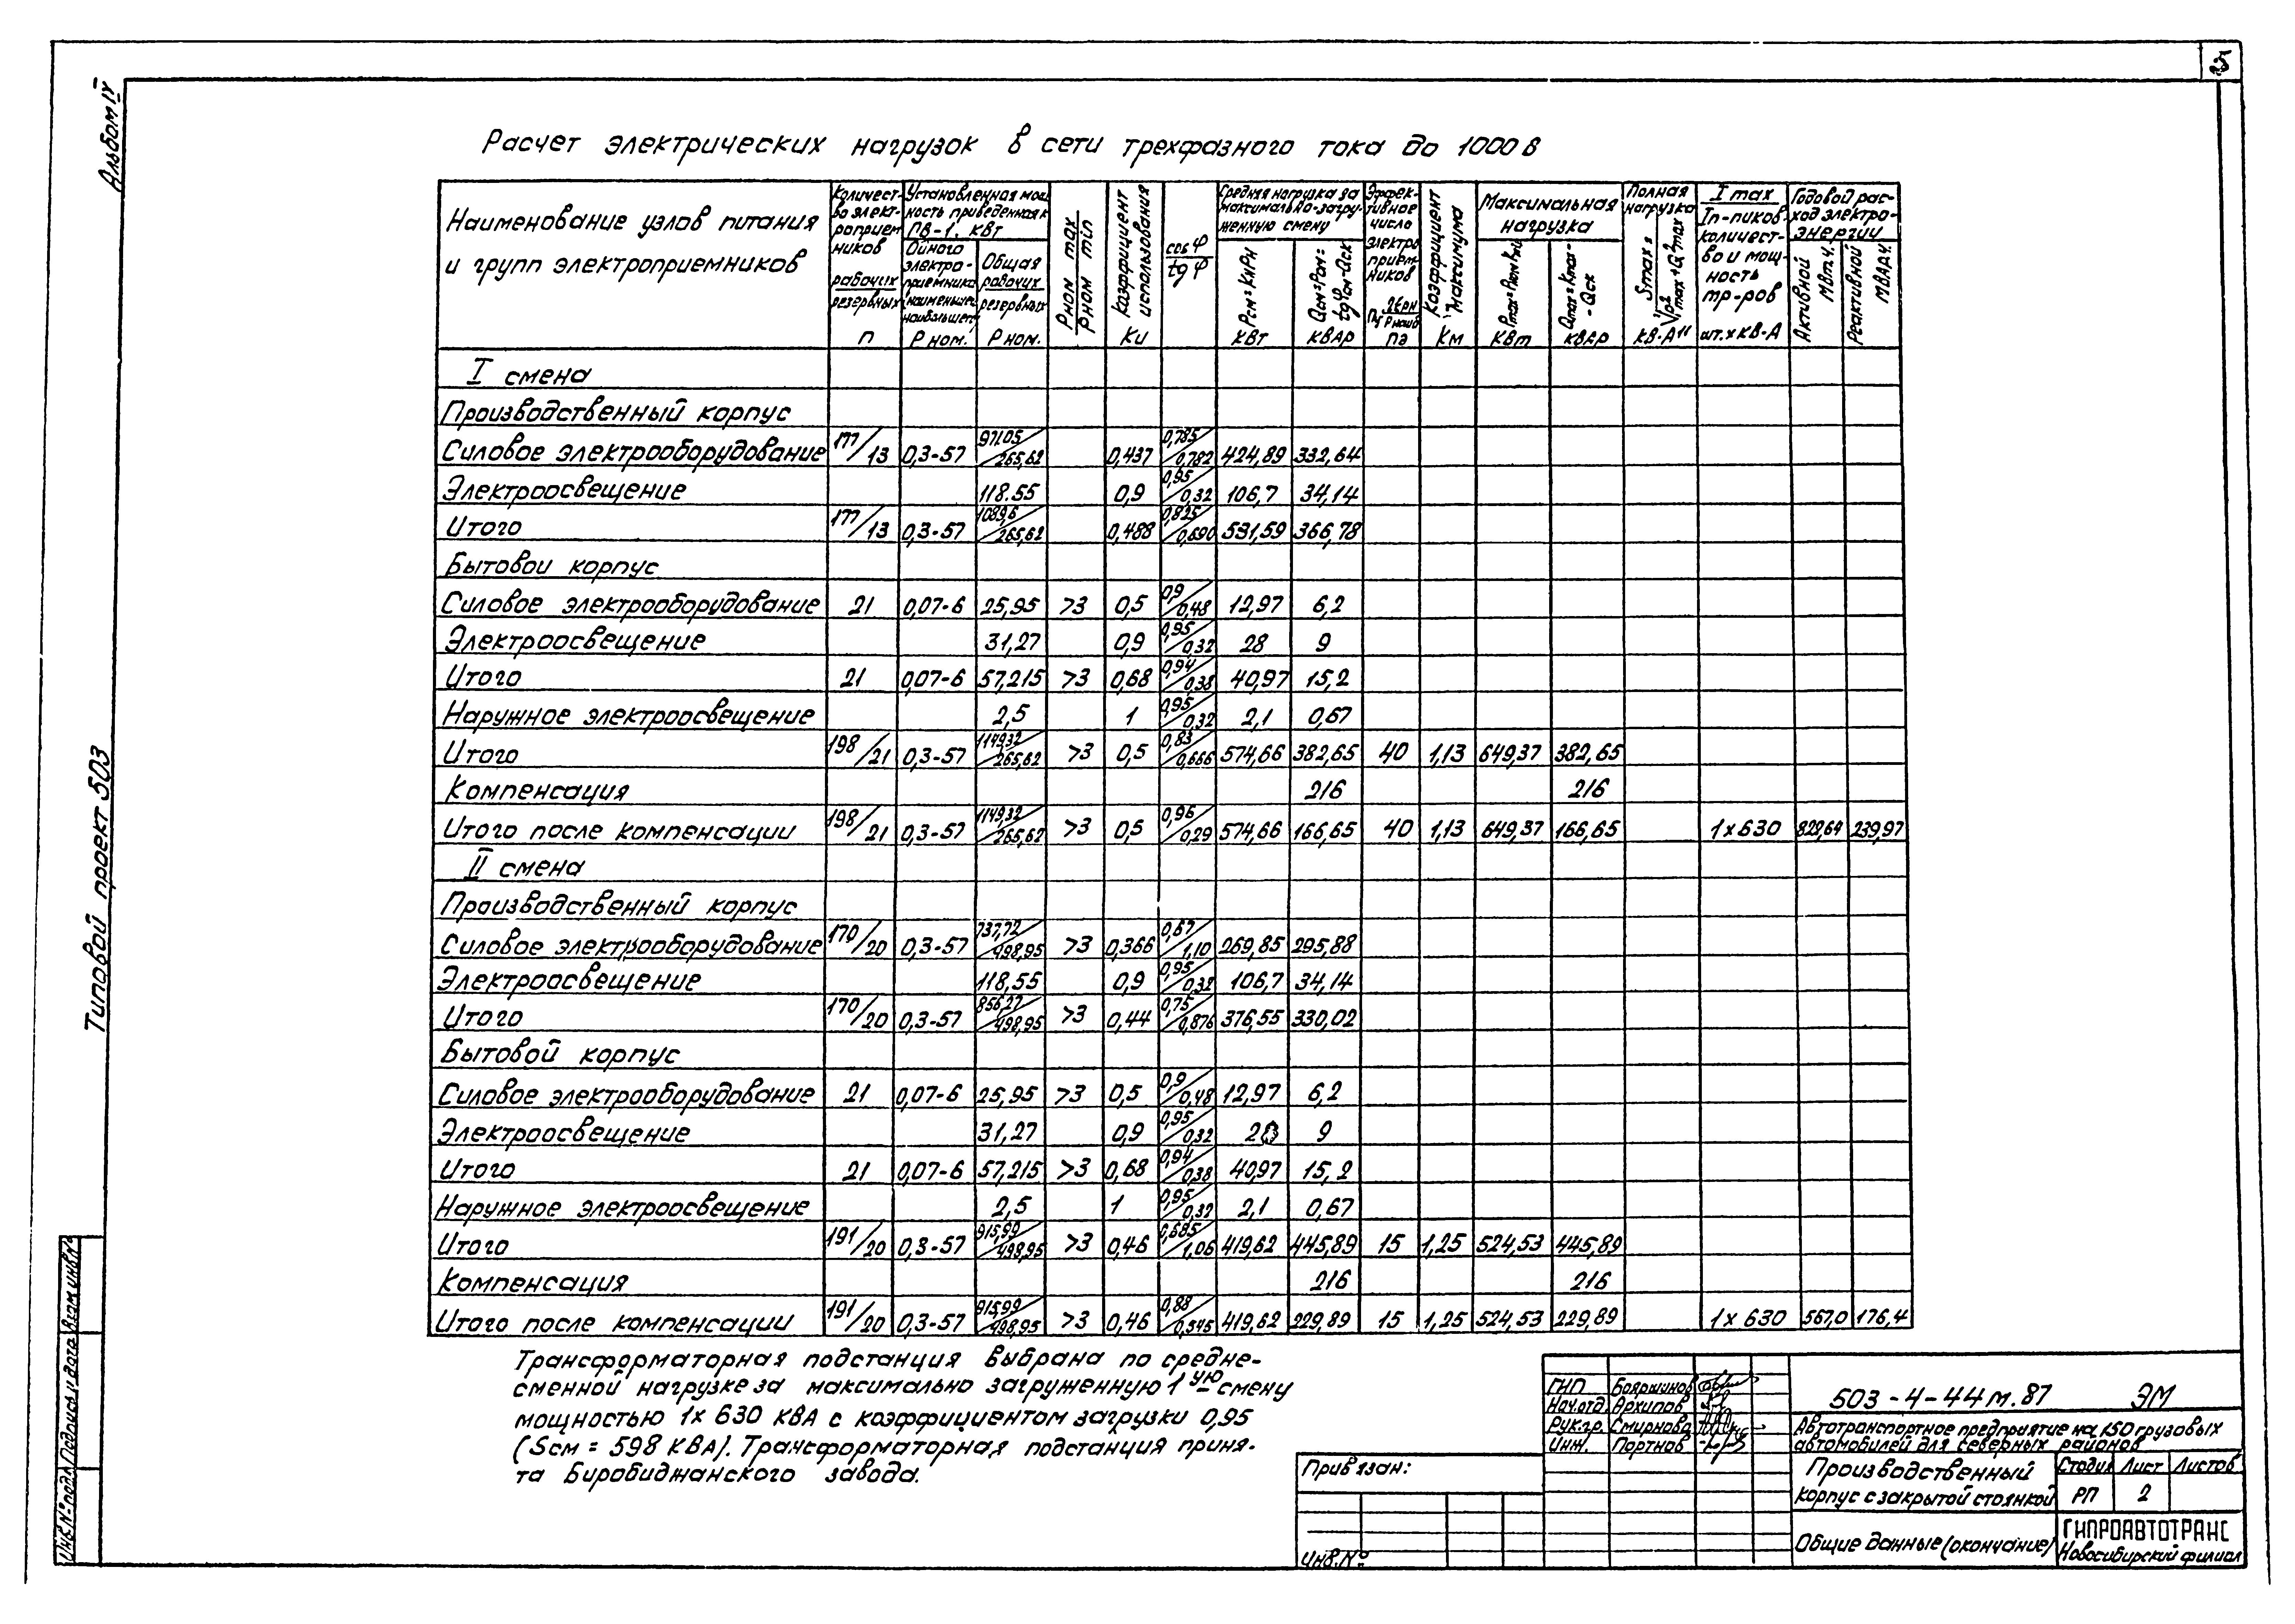 Альбом IV
Типовой проект 503
Расчет электрических нагрузок в сети трехфазного тока до 1000 в
Наименование узлов питания
и групп электроприемников
Количест-
во элект-
роприем
ников
рабочих
резервных
n
Установленная мощ
ность приведенная к
ПВ-1, кВт
Одного
электро-
приемника
наименьшег
наибольшего
Р ном.
Общая
рабочих
резервных
Р ном.
Рном max
Рном min
Коэффициент
использования
Ки
cos φ
tg φ
Средняя нагрузка за
максимально-загру-
женную смену
Рсм=КиРн
кВт
Qсм=Рсм·
tgφсм-Qск
кВАр
Эффек-
тивное
число
электро
прием
ников
nэ
Коэффициент
максимума
Км
Максимальная
нагрузка
кВт
Qmax=Kmax-
-Qск
кВАр
Полная
нагрузка
Smax=
√P²max+Q²max
кВ·А
I max
Iп-пиков.
количест-
во и мощ-
ность
тр-ров
шт.х кВ·А
Годовой рас-
ход электро-
энергии
Активной
МВт.ч.
Реактивной
МВАр.ч.
I смена
Производственный корпус
Силовое электрооборудование 177/13 0,3-57 971.05/265,62 0,437 0,785/0,782 424,89 332,64
Электроосвещение 118.55 0,9 0,95/0,32 106,7 34,14
Итого 177/13 0,3-57 1089,6/265,62 0,488 0,825/0,690 531,59 366,78
Бытовои корпус
Силовое электрооборудование 21 0,07-6 25,95 >3 0,5 0,9/0,48 12,97 6,2
Электроосвещение 31,27 0,9 0,95/0,32 28 9
Итого 21 0,07-6 57,215 >3 0,68 0,94/0,38 40,97 15,2
Наружное электроосвещение 2,5 1 0,95/0,32 2,1 0,67
Итого 198/21 0,3-57 1149,32/265,62 >3 0,5 0,83/0,666 574,66 382,65 40 1,13 649,37 382,65
Компенсация 216 216
Итого после компенсации 198/21 0,3-57 1149,32/265,62 >3 0,5 0,96/0,29 574,66 166,65 40 1,13 649,37 166,65 1х630 829,64 239,97
II смена
Производственный корпус
Силовое электрооборудование 170/20 0,3-57 737,72/498,95 >3 0,366 0,67/1,10 269,85 295,88
Электроосвещение 118,55 0,9 0,95/0,32 106,7 34,14
Итого 170/20 0,3-57 856,27/498,95 >3 0,44 0,75/0,876 376,55 330,02
Бытовой корпус
Силовое электрооборудование 21 0,07-6 25,95 >3 0,5 0,9/0,48 12,97 6,2
Электроосвещение 31,27 0,9 0,95/0,32 28 9
Итого 21 0,07-6 57,215 >3 0,68 0,94/0,38 40,97 15,2
Наружное электроосвещение 2,5 1 0,95/0,32 2,1 0,67
Итого 191/20 0,3-57 915,99/498,95 >3 0,46 0,685/1,06 419,62 445,89 15 1,25 524,53 445,89
Компенсация 216 216
Итого после компенсации 191/20 0,3-57 915,99/498,95 >3 0,46 0,88/0,545 419,62 229,89 15 1,25 524,53 229,89 1х 630 567,0 176,4
Трансформаторная подстанция выбрана по средне-
сменной нагрузке за максимально загруженную 1ую смену
мощностью 1х 630 кВА с коэффициентом загрузки 0,95
(Sсм = 598 кВА). Трансформаторная подстанция приня-
та Биробиджанского завода.
Инв.№ подл. Подпись и дата Взам инв№
Привязан:
Инв.№
ГИП Бояршинов
Нач.отд. Архипов
Рук.гр. Смирнова
Инж. Портнов
503-4-44м.87 ЭМ
Автотранспортное предприятие на 150 грузовых
автомобилей для северных районов
Производственный
корпус с закрытой стоянкой
Стадия Лист Листов
РП 2
Общие данные (окончание)
ГИПРОАВТОТРАНС
Новосибирский филиал